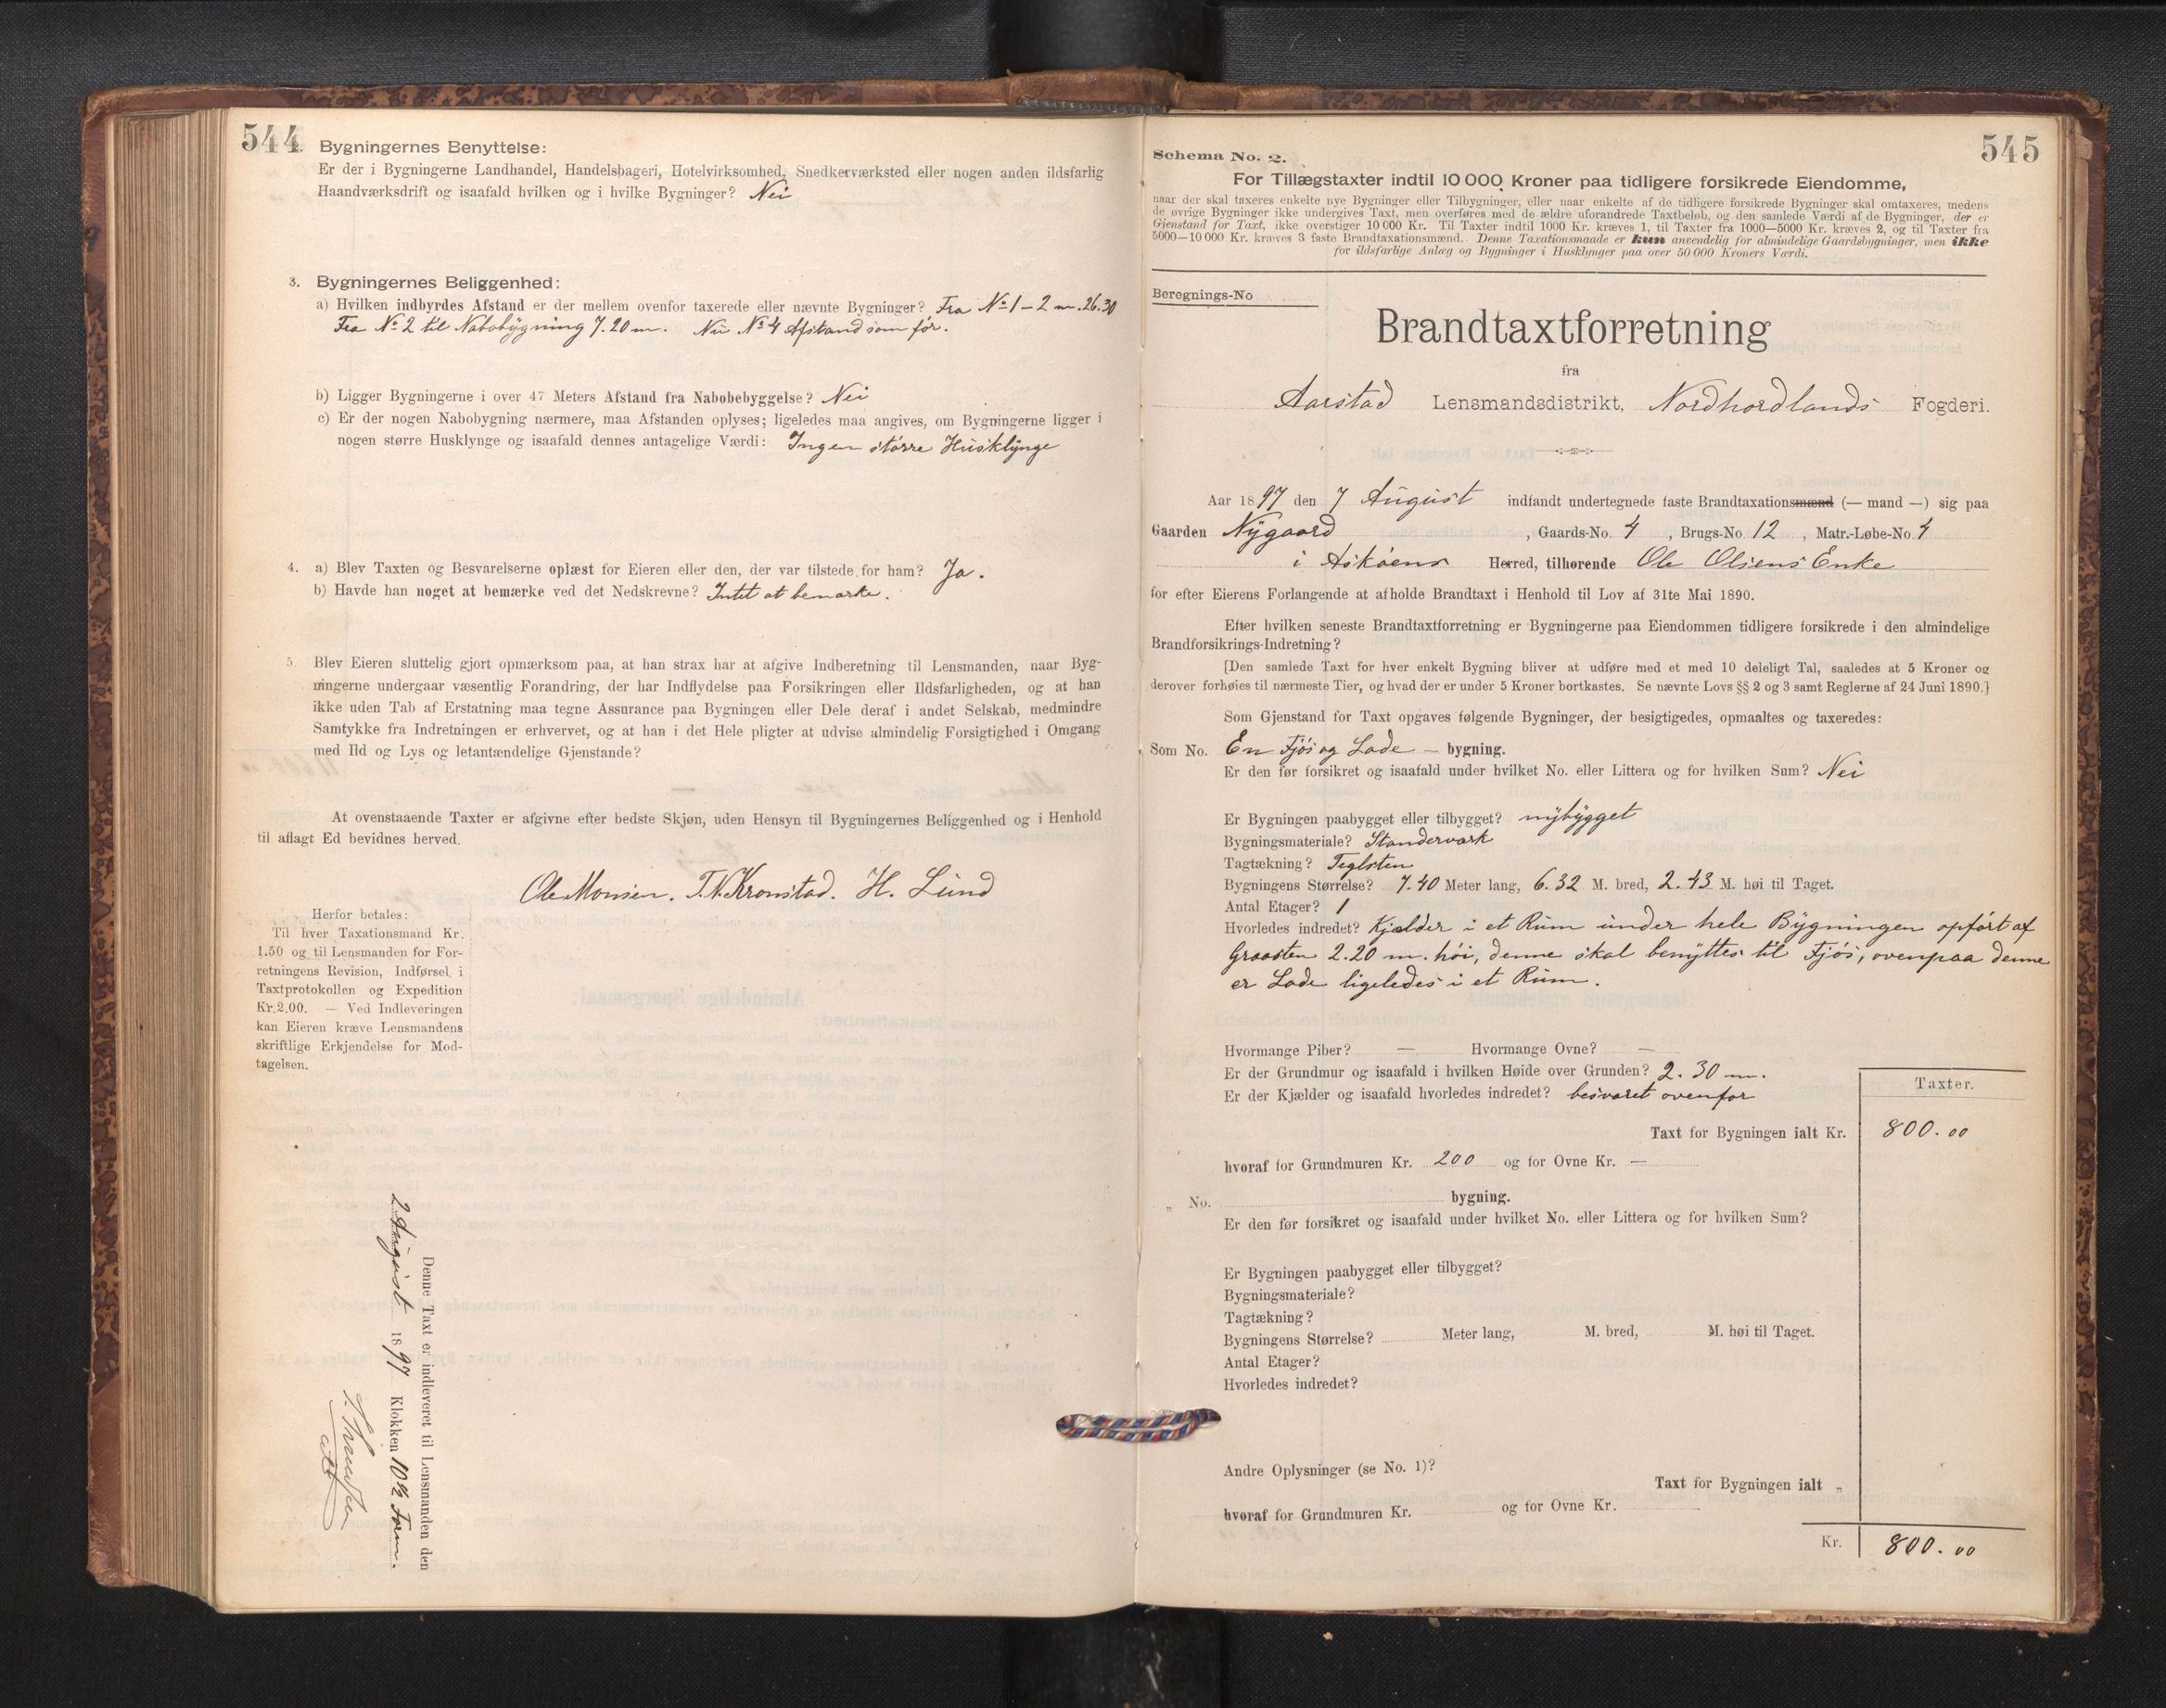 544
Bygningernes Benyttelse:
Er der i Bygningerne Landhandel, Handelsbageri, Hotelvirksomhed, Snedkerværksted eller nogen anden ildsfarlig
Haandværksdrift og isaafald hvilken og i hvilke Bygninger? Nei
3. Bygningernes Beliggenhed:
a) Hvilken indbyrdes Afstand er der mellem ovenfor taxerede eller nævnte Bygninger? Fra No 1 – 2 m. 26.30
Fra No 2 til Nabobygning 7.20 m. Nu No 4 Afstand som før.
b) Ligger Bygningerne i over 47 Meters Afstand fra Nabobebyggelse? Nei
c) Er der nogen Nabobygning nærmere, maa Afstanden oplyses; ligeledes maa angives, om Bygningerne ligger i
nogen større Husklynge og isaafald dennes antagelige Værdi: Ingen større Husklynge
4. a) Blev Taxten og Besvarelserne oplæst for Eieren eller den, der var tilstede for ham? Ja.
b) Havde han noget at bemærke ved det Nedskrevne? Intet at bemærke.
5. Blev Eieren sluttelig gjort opmærksom paa, at han strax har at afgive Indberetning til Lensmanden, naar Byg-
ningerne undergaar væsentlig Forandring, der har Indflydelse paa Forsikringen eller Ildsfarligheden, og at han
ikke uden Tab af Erstatning maa tegne Assurance paa Bygningen eller Dele deraf i andet Selskab, medmindre
Samtykke fra Indretningen er erhvervet, og at han i det Hele pligter at udvise almindelig Forsigtighed i Omgang
med Ild og Lys og letantændelige Gjenstande?
At ovenstaaende Taxter er afgivne efter bedste Skjøn, uden Hensyn til Bygningernes Beliggenhed og i Henhold
til aflagt Ed bevidnes herved.
Ole Monsen. T. N. Kronstad. H. Lund
Herfor betales:
Til hver Taxationsmand Kr.
1.50 og til Lensmanden for For-
retningens Revision, Indførsel i
Taxtprotokollen og Expedition
Kr. 2.00. — Ved Indleveringen
kan Eieren kræve Lensmandens
skriftlige Erkjendelse for Mod-
tagelsen.
Denne Taxt er indleveret til Lensmanden den
2 August 1897 Klokken 10½ Form.
att
545
Schema No. 2.
For Tillægstaxter indtil 10 000 Kroner paa tidligere forsikrede Eiendomme,
naar der skal taxeres enkelte nye Bygninger eller Tilbygninger, eller naar enkelte af de tidligere forsikrede Bygninger skal omtaxeres, medens
de øvrige Bygninger ikke undergives Taxt, men overføres med de ældre uforandrede Taxtbeløb, og den samlede Værdi af de Bygninger, der er
Gjenstand for Taxt, ikke overstiger 10 000 Kr. Til Taxter indtil 1000 Kr. kræves 1, til Taxter fra 1000—5000 Kr. kræves 2, og til Taxter fra
5000—10 000 Kr. kræves 3 faste Brandtaxationsmænd. Denne Taxationsmaade er kun anvendelig for almindelige Gaardsbygninger, men ikke
for ildsfarlige Anlæg og Bygninger i Husklynger paa over 50 000 Kroners Værdi.
Beregnings-No
Brandtaxtforretning
fra
Aarstad Lensmandsdistrikt, Nordhordlands Fogderi.
Aar 1897 den 7 August indfandt undertegnede faste Brandtaxationsmænd (— mand —) sig paa
Gaarden Nygaard, Gaards-No. 4, Brugs-No. 12, Matr.-Løbe-No. 4
i Askøens Herred, tilhørende Ole Olsens Enke
for efter Eierens Forlangende at afholde Brandtaxt i Henhold til Lov af 31te Mai 1890.
Efter hvilken seneste Brandtaxtforretning er Bygningerne paa Eiendommen tidligere forsikrede i den almindelige
Brandforsikrings-Indretning?
[Den samlede Taxt for hver enkelt Bygning bliver at udføre med et med 10 deleligt Tal, saaledes at 5 Kroner og
derover forhøies til nærmeste Tier, og hvad der er under 5 Kroner bortkastes. Se nævnte Lovs §§ 2 og 3 samt Reglerne af 24 Juni 1890.]
Som Gjenstand for Taxt opgaves følgende Bygninger, der besigtigedes, opmaaltes og taxeredes:
Som No. En Fjøs og Lade – bygning.
Er den før forsikret og isaafald under hvilket No. eller Littera og for hvilken Sum? Nei
Er Bygningen paabygget eller tilbygget? nybygget
Bygningsmateriale? Standerværk
Tagtækning? Teglsten
Bygningens Størrelse? 7.40 Meter lang, 6.32 M. bred, 2.43 M. høi til Taget.
Antal Etager? 1
Hvorledes indredet? Kjælder i et Rum under hele Bygningen opført af
Graasten 2.20 m. høi, denne skal benyttes til Fjøs, ovenpaa denne
er Lade ligeledes i et Rum.
Hvormange Piber? — Hvormange Ovne? —
Er der Grundmur og isaafald i hvilken Høide over Grunden? 2.30 m.
Er der Kjælder og isaafald hvorledes indredet? besvaret ovenfor
Taxter.
Taxt for Bygningen ialt Kr. 800.00
hvoraf for Grundmuren Kr. 200 og for Ovne Kr. —
„ No. bygning.
Er den før forsikret og isaafald under hvilket No. eller Littera og for hvilken Sum?
Er Bygningen paabygget eller tilbygget?
Bygningsmateriale?
Tagtækning?
Bygningens Størrelse? Meter lang, M. bred, M. høi til Taget.
Antal Etager?
Hvorledes indredet?
Andre Oplysninger (se No. 1)?
Taxt for Bygningen ialt „
hvoraf for Grundmuren Kr. og for Ovne Kr.
Kr. 800.00